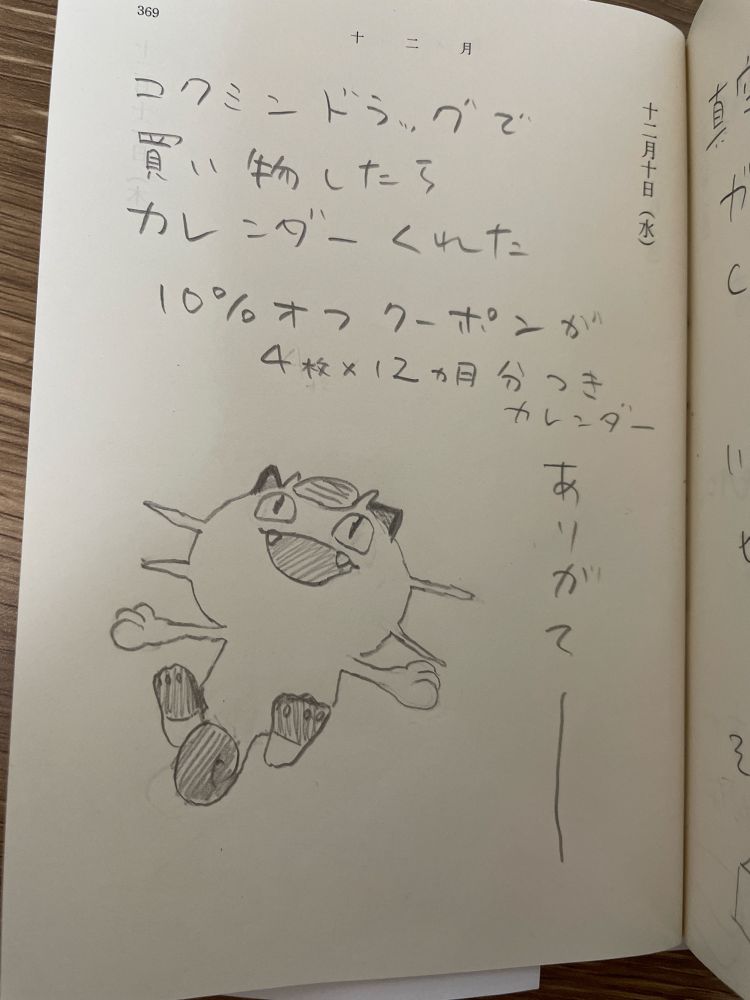 369
十二月
十二月十日(水)
コクミンドラッグで
買い物したら
カレンダーくれた
10%オフクーポンが
4枚×12カ月分つき
カレンダー
ありがてー
真
が
し